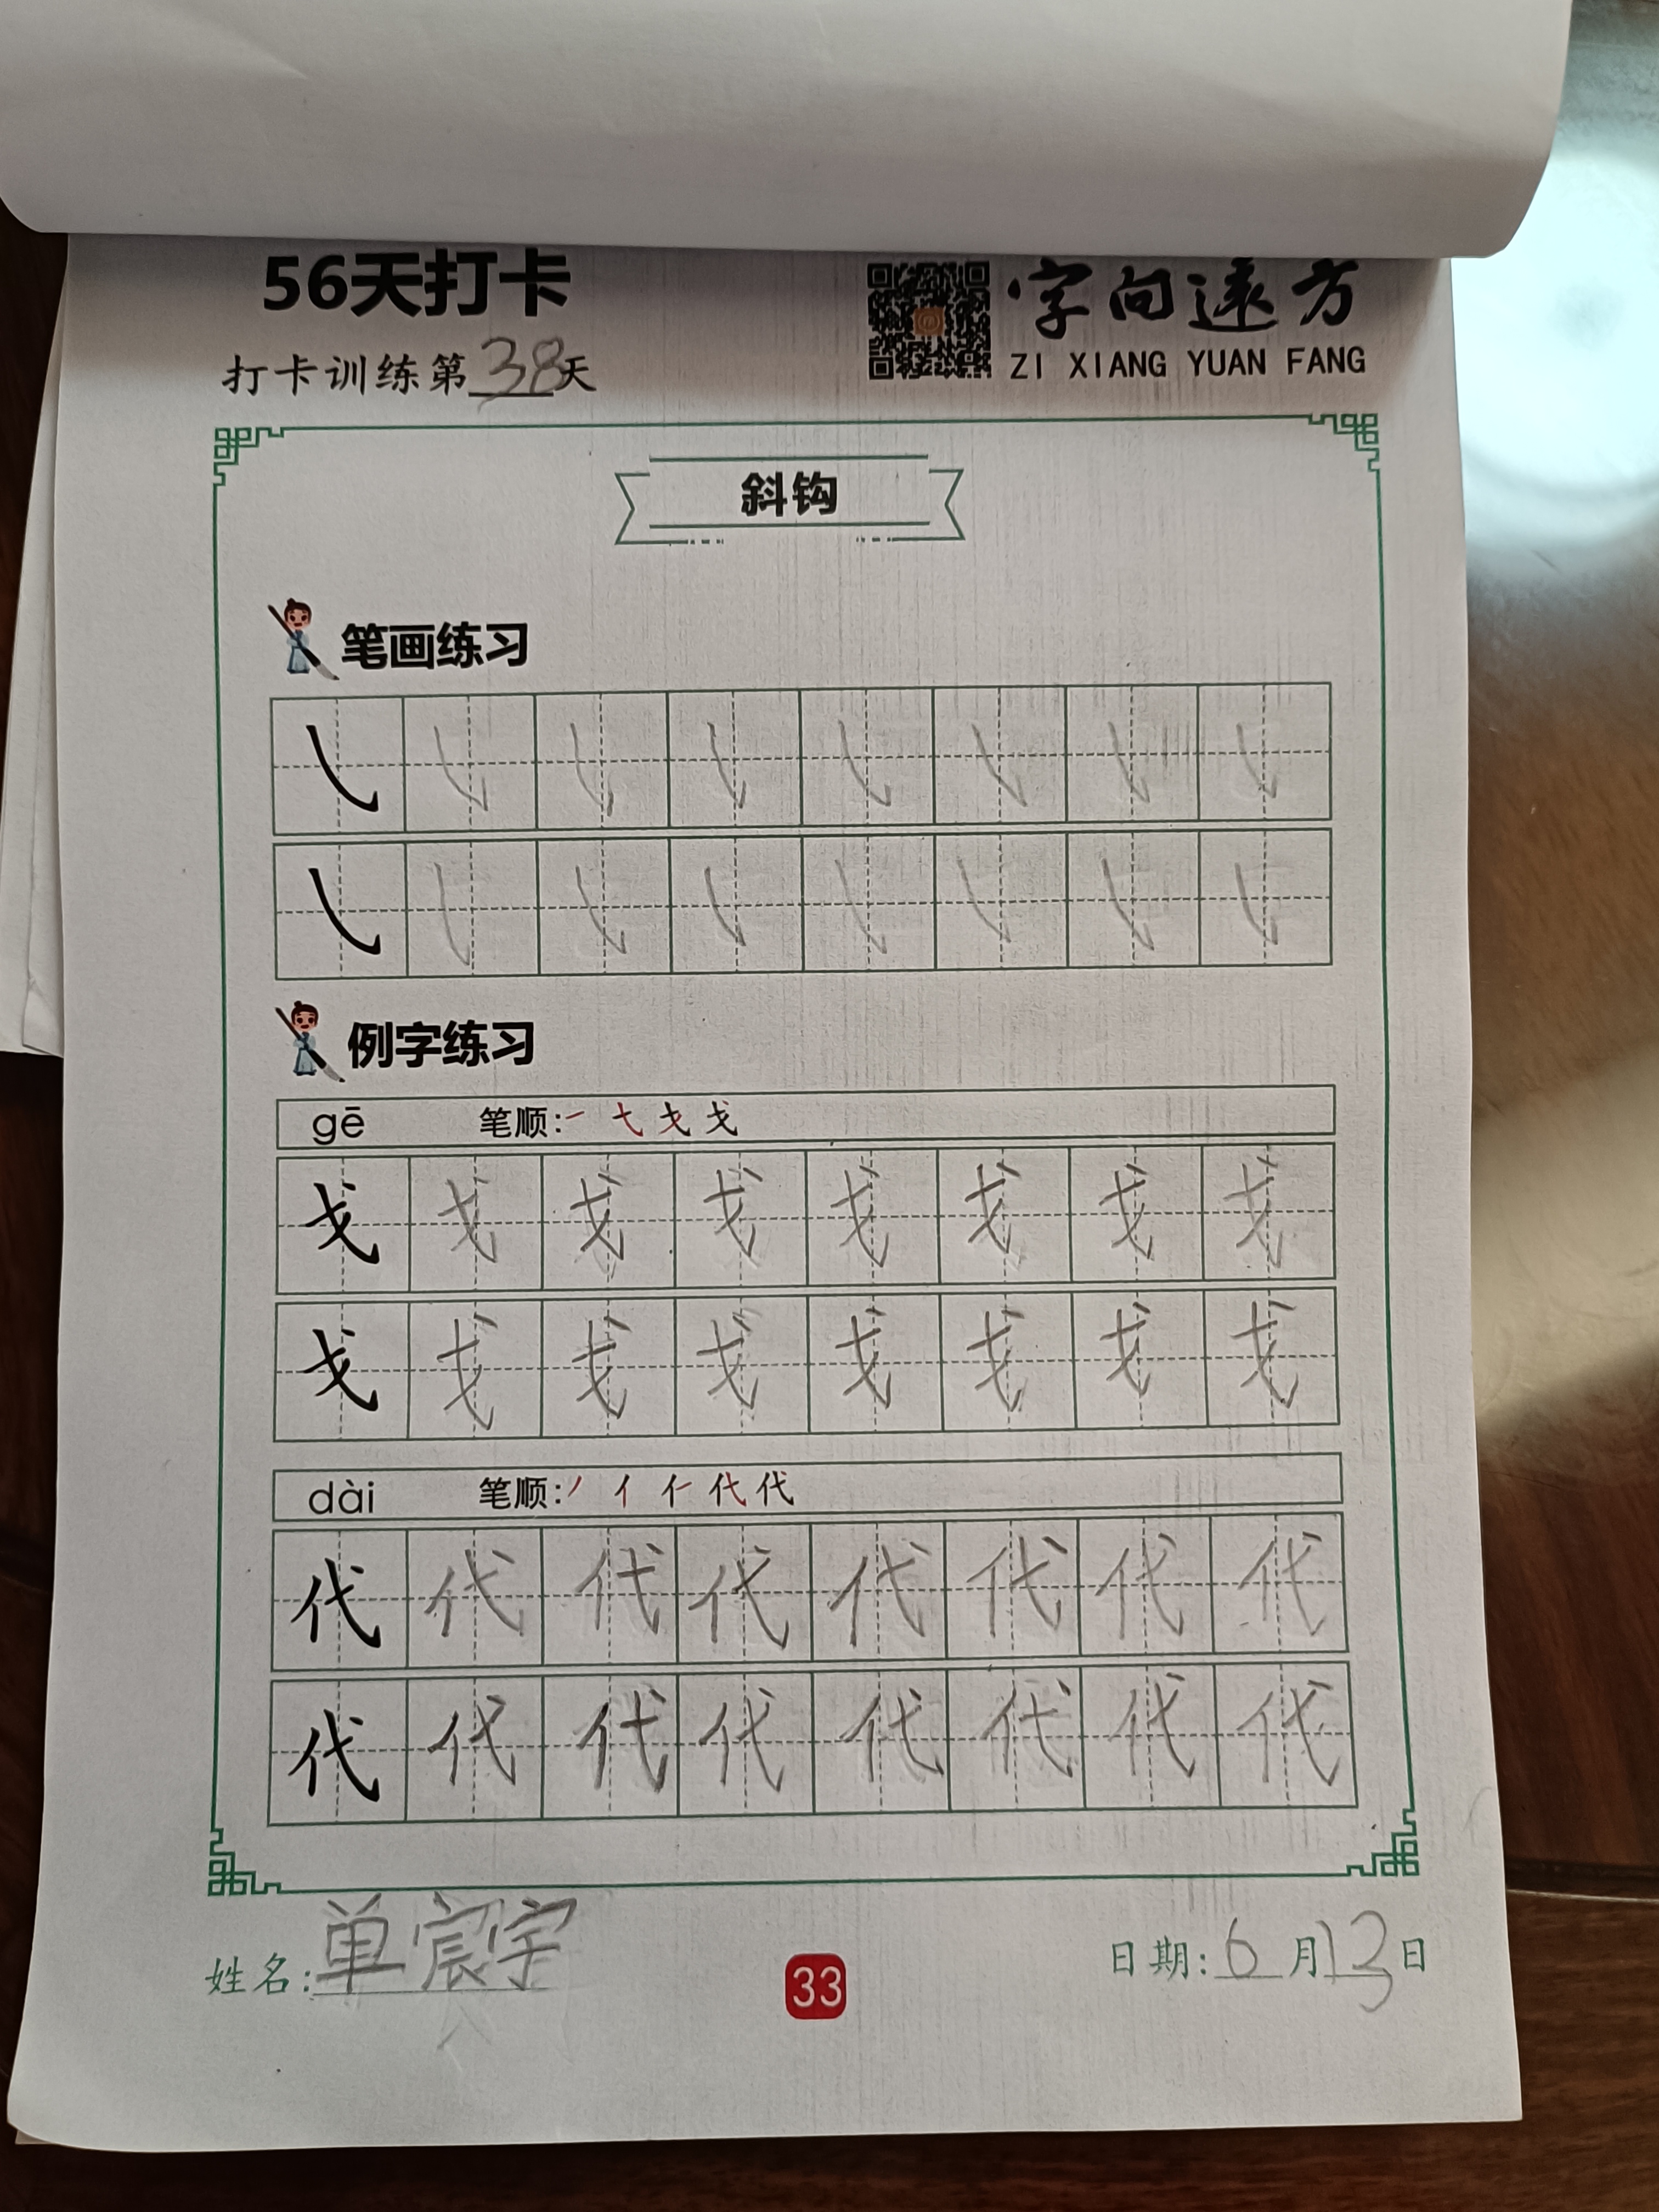 56天打卡
字向远方
打卡训练第38天
ZI XIANG YUAN FANG
斜钩
笔画练习
㇂ ㇂ ㇂ ㇂ ㇂ ㇂ ㇂ ㇂
㇂ ㇂ ㇂ ㇂ ㇂ ㇂ ㇂ ㇂
例字练习
gē 笔顺:一 弋 戈 戈
戈 戈 戈 戈 戈 戈 戈 戈
戈 戈 戈 戈 戈 戈 戈 戈
dài 笔顺:丿 亻 仁 代 代
代 代 代 代 代 代 代 代
代 代 代 代 代 代 代 代
姓名:单宸宇
33
日期:6月13日